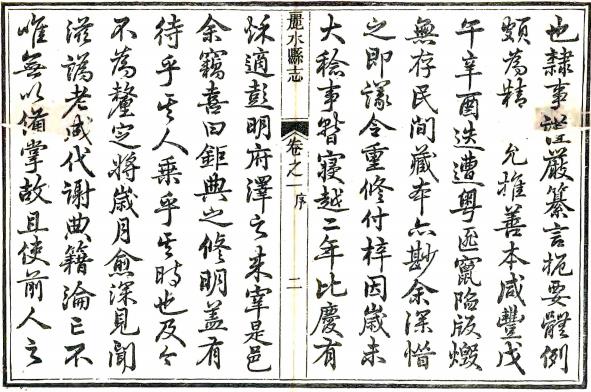 也隸事謹嚴纂言扼要體例
頗為精允推善本咸豐戊
午辛酉迭遭粵匪竄陷版燬
無存民間藏本亦尠余深惜
之即議令重修付梓因歲未
大稔事暫寢越二年比慶有
麗水縣志
卷之一
序
二
秌適彭明府澤之來宰是邑
余竊喜曰鉅典之修明蓋有
待乎其人乗乎其時也及今
不為釐定將歲月愈深見聞
滋譌老成代謝典籍淪亡不
唯無以備掌故且使前人之